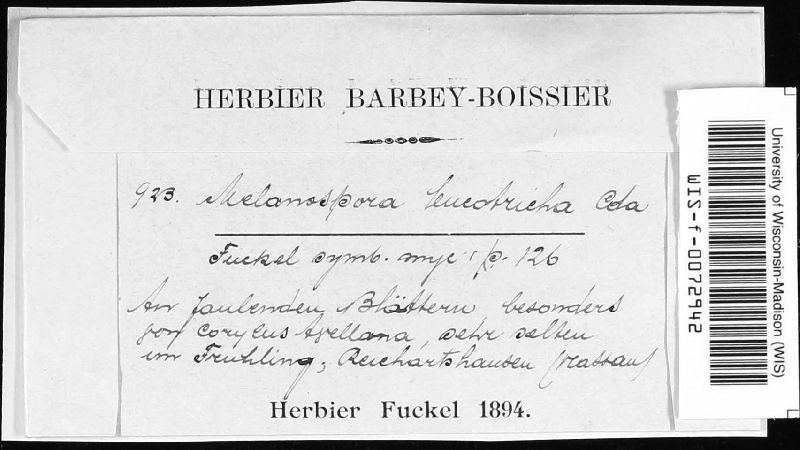 HERBIER BARBEY-BOISSIER
923. Melanospora leucotricha Cda
Fuckel symb. myc. p. 126
An faulenden Blättern besonders
von Corylus Avellana, sehr selten
im Fruhling, Reichartshausen (Nassau)
Herbier Fuckel 1894.
University of Wisconsin-Madison (WIS)
WIS-f-0072942